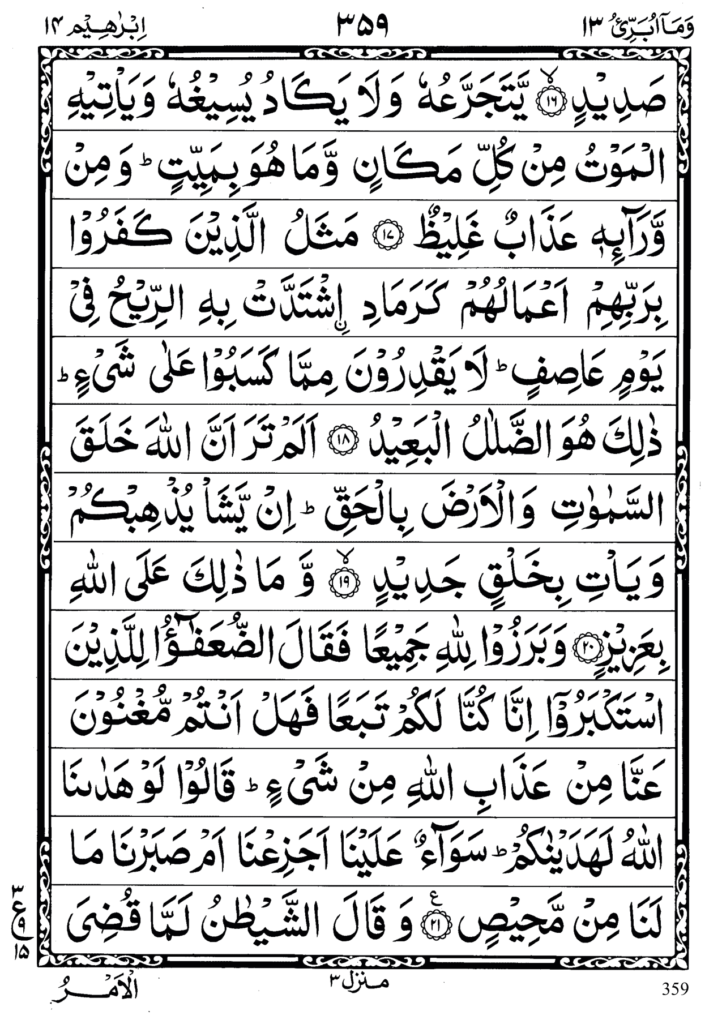 اِبْرٰهِیْم ۱۴ ۳۵۹ وَمَاۤ اُبَرِّئُ ۱۳
صَدِیْدٍ ﴿۱۶﴾ۙ یَّتَجَرَّعُهٗ وَلَا یَكَادُ یُسِیْغُهٗ وَیَاْتِیْهِ
الْمَوْتُ مِنْ كُلِّ مَكَانٍ وَّمَا هُوَ بِمَیِّتٍ ؕ وَمِنْ
وَّرَآئِهٖ عَذَابٌ غَلِیْظٌ ﴿۱۷﴾ مَثَلُ الَّذِیْنَ كَفَرُوْا
بِرَبِّهِمْ اَعْمَالُهُمْ كَرَمَادِ ِ۟اشْتَدَّتْ بِهِ الرِّیْحُ فِیْ
یَوْمٍ عَاصِفٍ ؕ لَا یَقْدِرُوْنَ مِمَّا كَسَبُوْا عَلٰی شَیْءٍ ؕ
ذٰلِكَ هُوَ الضَّلٰلُ الْبَعِیْدُ ﴿۱۸﴾ اَلَمْ تَرَ اَنَّ اللّٰهَ خَلَقَ
السَّمٰوٰتِ وَالْاَرْضَ بِالْحَقِّ ؕ اِنْ یَّشَاْ یُذْهِبْكُمْ
وَیَاْتِ بِخَلْقٍ جَدِیْدٍ ﴿۱۹﴾ۙ وَّ مَا ذٰلِكَ عَلَی اللّٰهِ
بِعَزِیْزٍ ﴿۲۰﴾ وَبَرَزُوْا لِلّٰهِ جَمِیْعًا فَقَالَ الضُّعَفٰٓؤُا لِلَّذِیْنَ
اسْتَكْبَرُوْۤا اِنَّا كُنَّا لَكُمْ تَبَعًا فَهَلْ اَنْتُمْ مُّغْنُوْنَ
عَنَّا مِنْ عَذَابِ اللّٰهِ مِنْ شَیْءٍ ؕ قَالُوْا لَوْ هَدٰىنَا
اللّٰهُ لَهَدَیْنٰكُمْ ؕ سَوَآءٌ عَلَیْنَاۤ اَجَزِعْنَاۤ اَمْ صَبَرْنَا مَا
لَنَا مِنْ مَّحِیْصٍ ﴿۲۱﴾ۧ وَ قَالَ الشَّیْطٰنُ لَمَّا قُضِیَ
۳
ع
۹
۱۵
الْاَمْرُ منزل ۳ 359